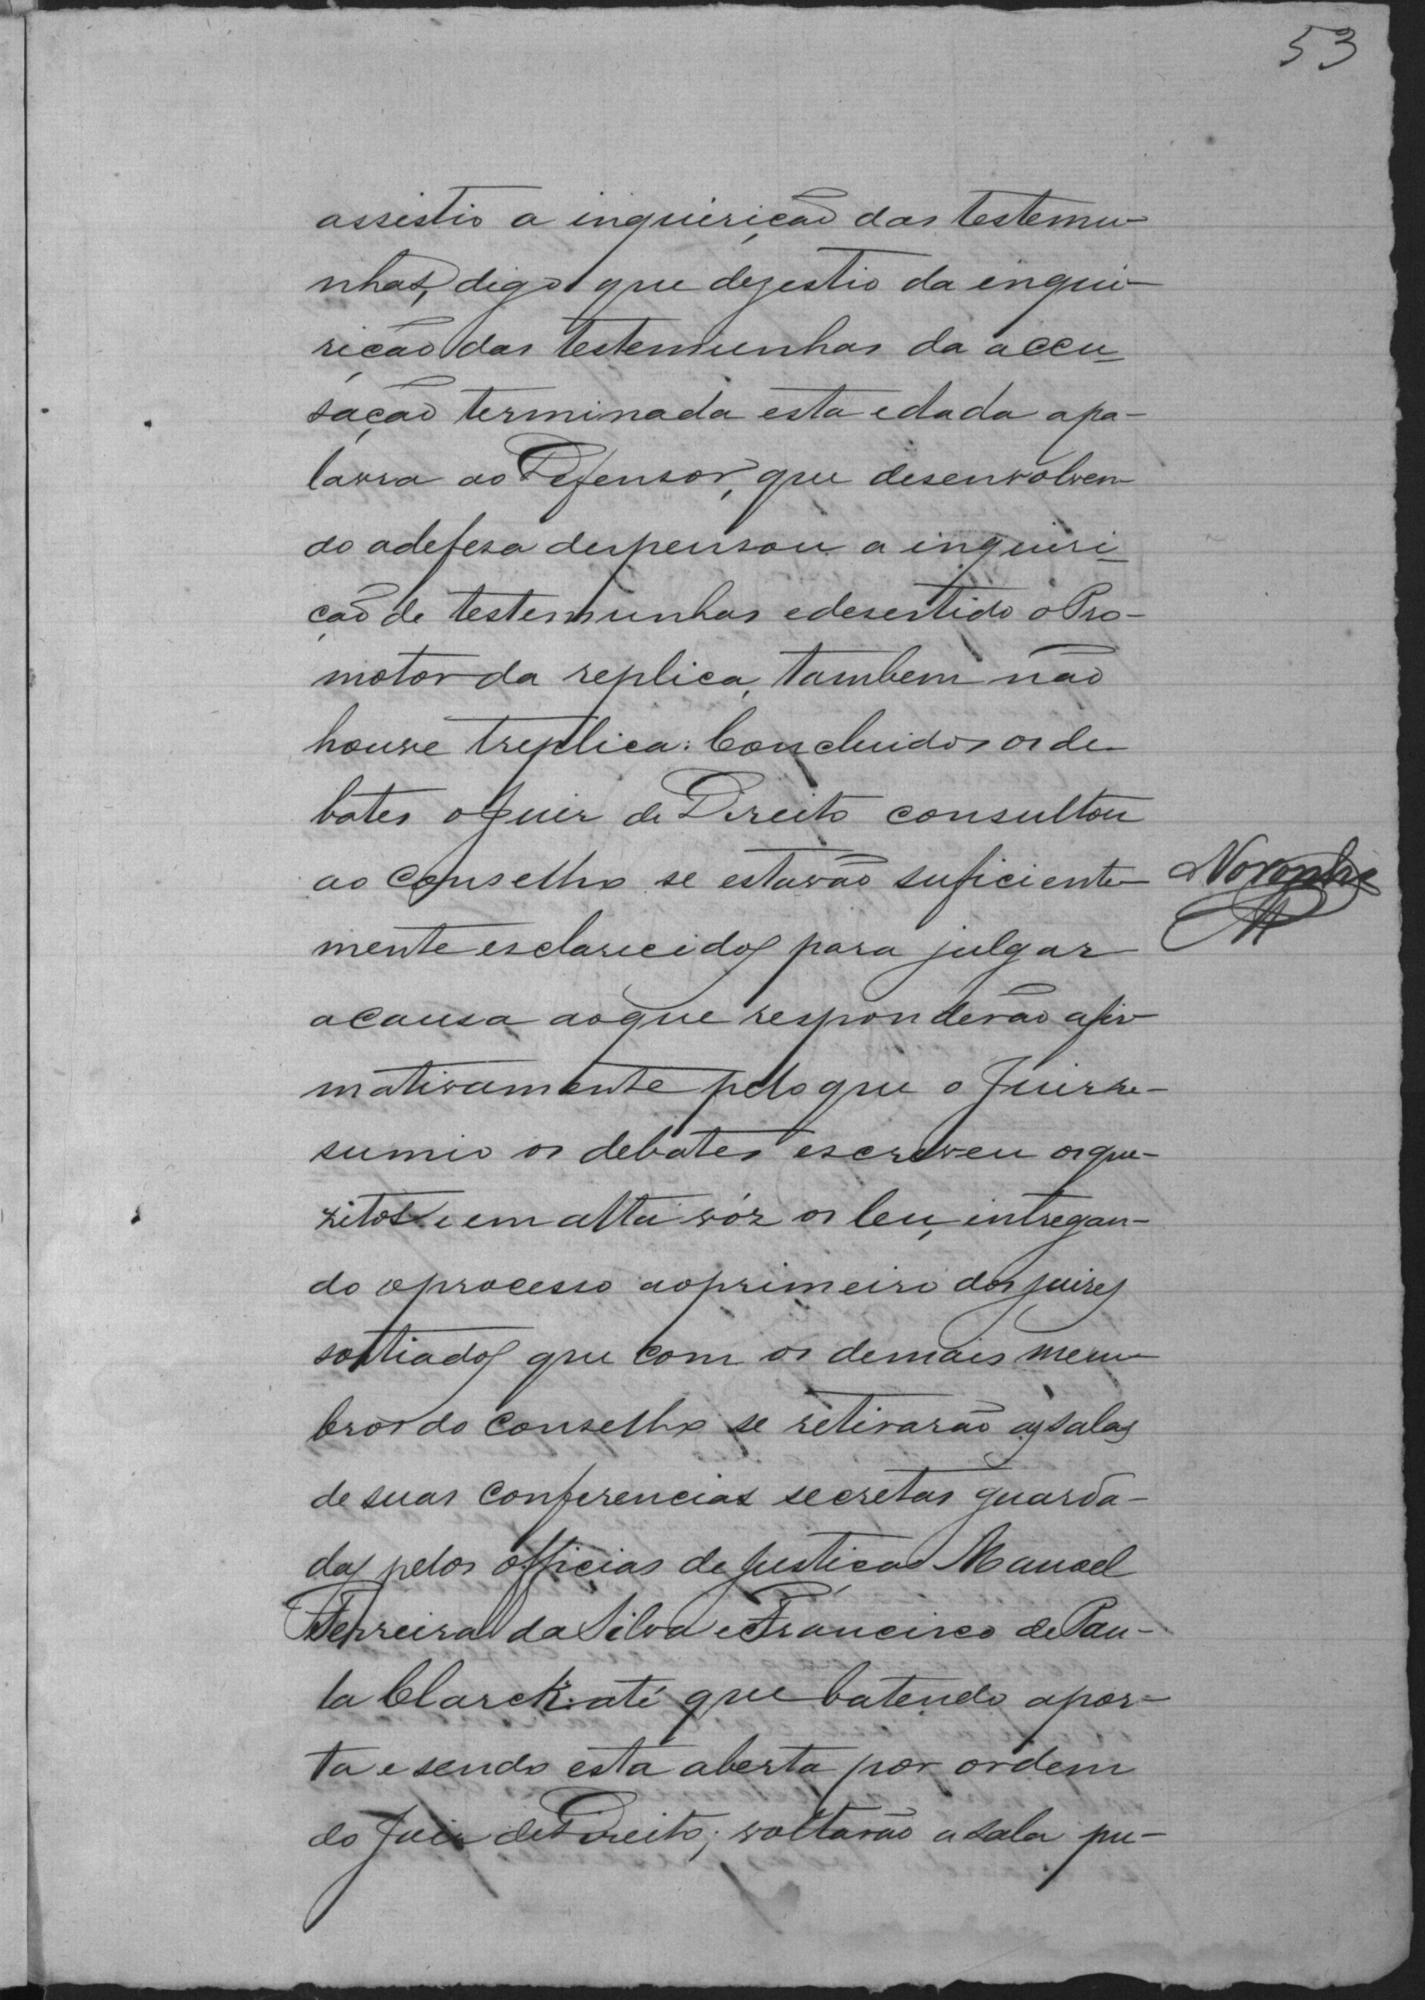 53
assistio a inquirição das testemu-
nhas, digo que dezestio da inqui-
rição das testemunhas da accu-
sação terminada esta e dada a pa-
lavra ao Defensor, que desenvolven-
do a defesa despensou a inquiri-
ção de testemunhas e desestido o Pro-
motor da replica, tambem não
houve treplica: Concluidos os de-
bates o Juiz de Direito consultou
ao conselho se estavão suficiente-
mente esclarecidos para julgar
a causa ao que responderão afir-
mativamente pelo que o Juiz re-
sumio os debates escreveu os que-
zitos e em alta vóz os leu, entregan-
do o processo ao primeiro dos juizes
sortiados que com os demais mem-
bros do conselho se retirarão as salas
de suas conferencias secretas guarda-
das pelos officias de Justiça Manoel
Ferreira da Silva e Francisco de Pau-
la Clarck: até que batendo a por-
ta e sendo esta aberta por ordem
do Juiz de Direito; voltarão a sala pu-